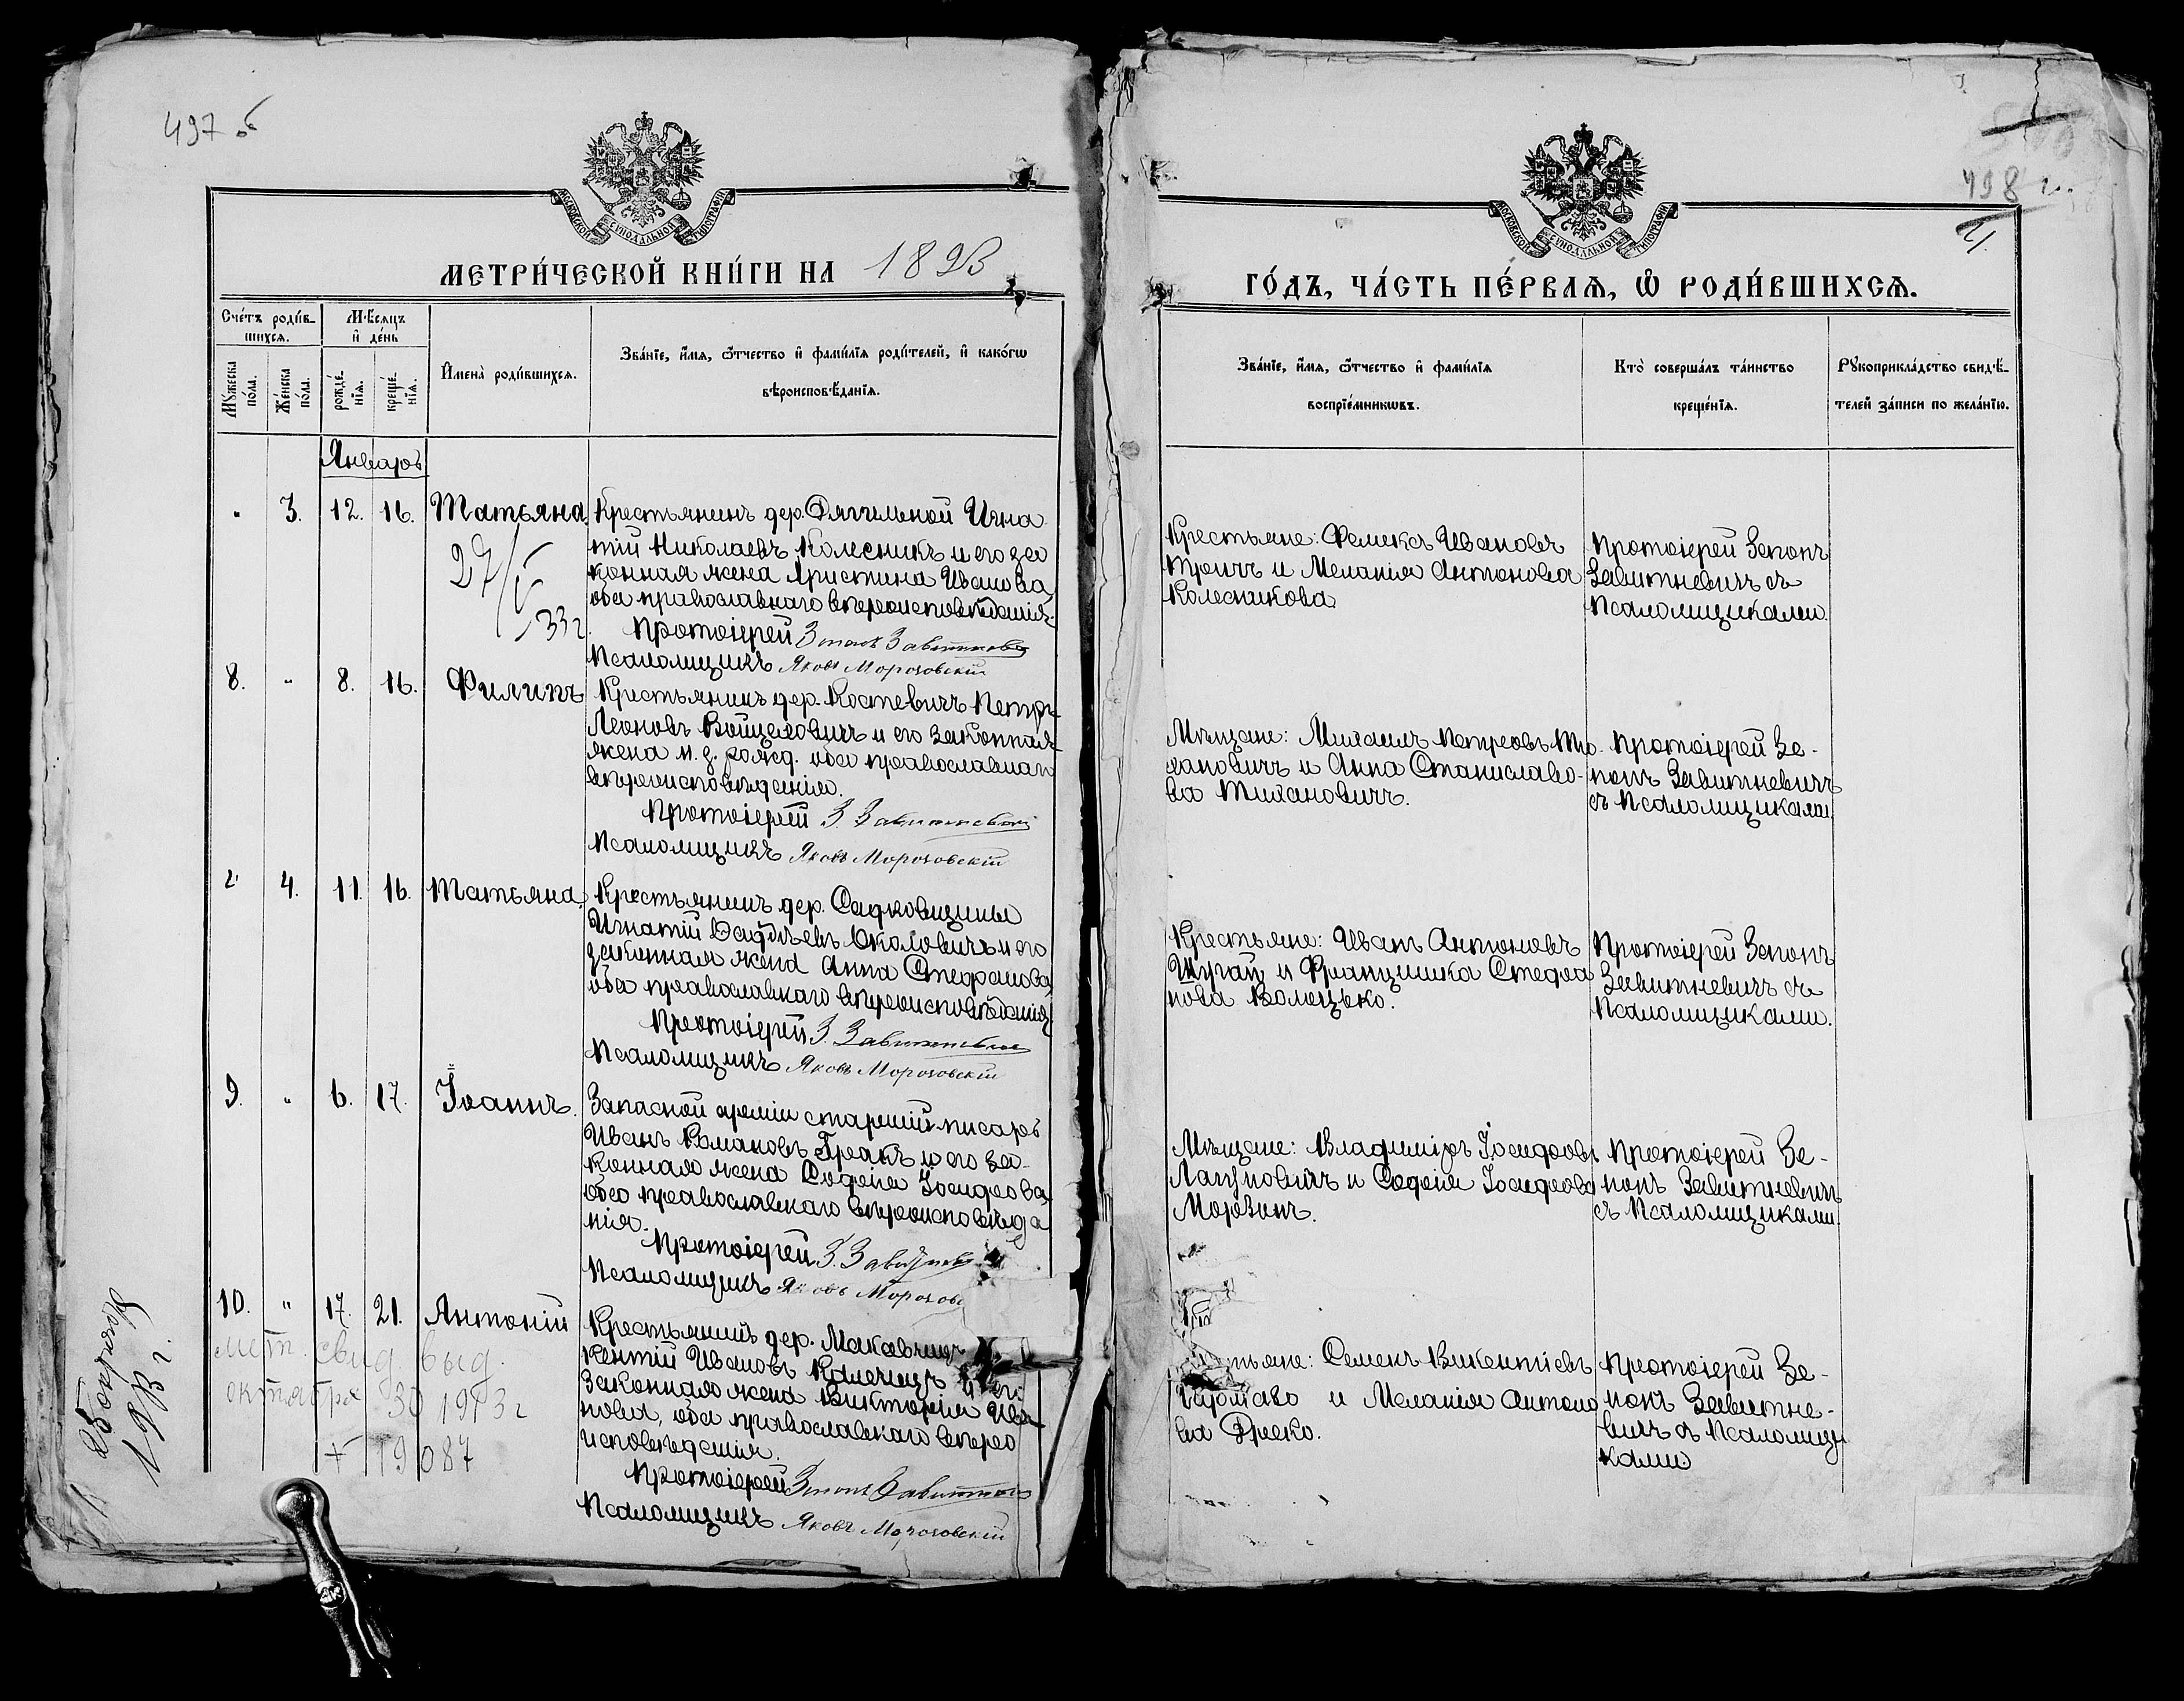 497 об
МОСКОВСКОЙ СУНОДАЛЬНОЙ ТИПОГРАФІИ
МЕТРИ́ЧЕСКОЙ КНИ́ГИ НА 1893
Сче́тъ роди́в-
шихся.
Мѣ́сяцъ
и҆ де́нь
И҆мена̀ роди́вшихся.
Зва́нїе, и҆́мя, ѻ҆́тчество и҆ фами́лїя роди́телей, и҆ како́гѡ
вѣроисповѣ́данїя.
Мꙋ́жеска
по́ла.
Же́нска
по́ла.
рожде́-
нїя.
креще́-
нїя.
Январь
" 3. 12. 16. Татьяна
Крестьянинъ дер. Игна
тій Николаевъ Колесникъ и его за
конная жена Христина Иванова
оба православнаго вѣроисповѣданія.
Протоіерей
Псаломщикъ Яковъ Морозовскій
27/V
33 г.
8. " 8. 16. Филипъ
Крестьянинъ дер. Костевичъ Петръ
Леоновъ Войцеховичъ и его законная
жена оба православнаго
вѣроисповѣданія.
Протоіерей З. Завитневичъ
Псаломщикъ Яковъ Морозовскій
" 4. 11. 16. Татьяна
Крестьянинъ дер. Садковщины
Игнатій Околовичъ и его
законная жена Анна Стефанова
оба православнаго вѣроисповѣданія
Протоіерей З. Завитневичъ
Псаломщикъ Яковъ Морозовскій
9. " 6. 17. Іоаннъ.
Запасной арміи старшій писарь
Иванъ Романовъ и его за-
конная жена Софія Іосифова
оба православнаго вѣроисповѣда
нія.
Протоіерей З.
Псаломщикъ Яковъ
10. " 17. 21. Антоній
Крестьянинъ дер.
кентій Ивановъ и его
законная жена Викторія Ива
нова, оба православнаго вѣро
исповѣданія.
Протоіерей Зенонъ
Псаломщикъ Яковъ Морозовскій
мет. свид. выд.
октября 30 1913 г
19087
1913 г.
498
МОСКОВСКОЙ СУНОДАЛЬНОЙ ТИПОГРАФІИ
ГО́ДЪ, ЧА́СТЬ ПЕ́РВАЯ, Ѽ РОДИ́ВШИХСЯ.
Зва́нїе, и҆́мя, ѻ҆́тчество и҆ фами́лїя
воспрїе́мникѡвъ.
Кто̀ соверша́лъ та́инство
креще́нїя.
Рꙋкоприкла́дство свидѣ́-
телей за́писи по жела́нїю.
Крестьяне: Феликсъ Ивановъ
и Меланія Антонова
Колесникова
Протоіерей Зенонъ
Завитневичъ съ
Псаломщиками.
Мѣщане: Михаилъ Петровъ Ти-
хановичъ и Анна Станиславо-
ва Тихановичъ.
Протоіерей Зе-
нонъ Завитневичъ
съ Псаломщиками
Крестьяне: Иванъ Антоновъ
Шугай и Францишка Стефа
нова
Протоіерей Зенонъ
Завитневичъ съ
Псаломщиками.
Мѣщане: Владиміръ Іосифовъ
Лапуновичъ и Софія Іосифова
Протоіерей Зе-
нонъ Завитневичъ
съ Псаломщиками.
Семенъ Викентіевъ
и Меланія Антоно
ва
Протоіерей Зе-
нонъ Завитне-
вичъ съ Псаломщи
ками